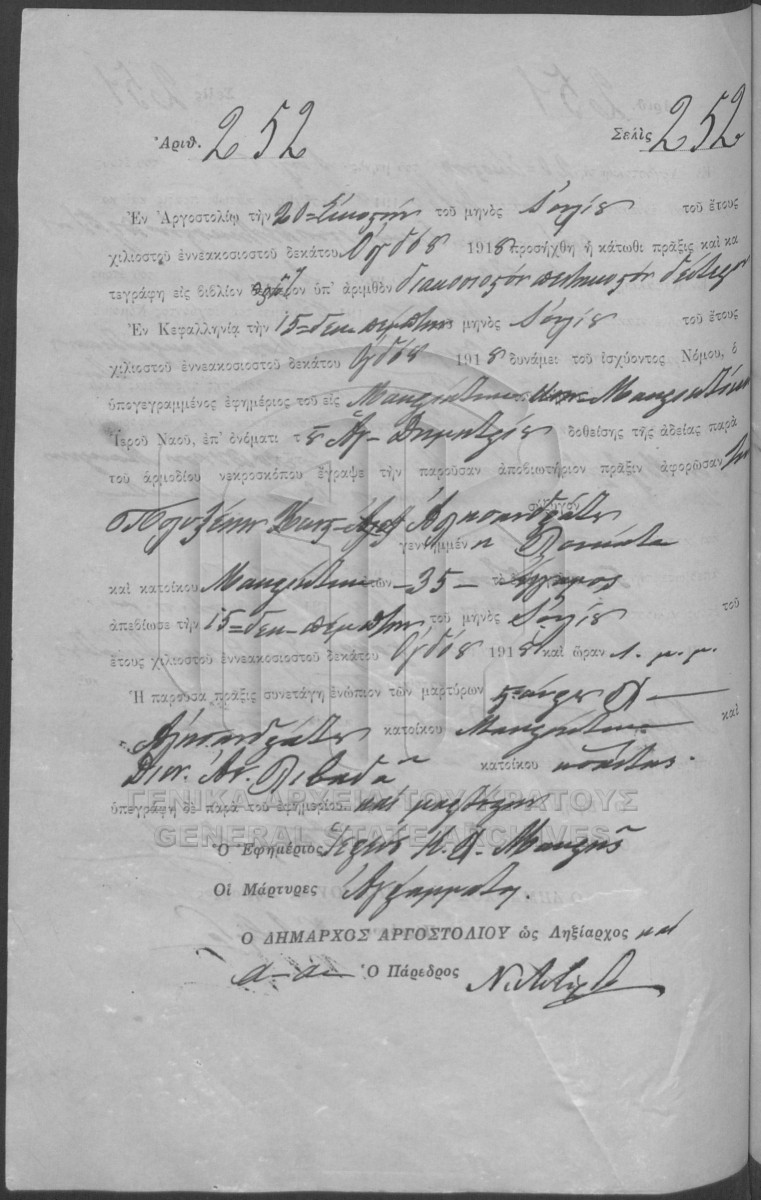 Ἀριθ. 252 Σελὶς 252
Ἐν Ἀργοστολίῳ τὴν 20=Εἰκοστὴν τοῦ μηνὸς Ἰουλίου τοῦ ἔτους
χιλιοστοῦ ἐννεακοσιοστοῦ δεκάτου Ὀγδόου 1918 προσήχθη ἡ κάτωθι πρᾶξις καὶ κα
τεγράφη εἰς βιβλίον ὑπ' ἀριθμὸν διακοσιοστὸν πεντηκοστὸν δεύτερον
Ἐν Κεφαλληνίᾳ τὴν 15=δεκ. πέμπτην μηνὸς Ἰουλίου τοῦ ἔτους
χιλιοστοῦ ἐννεακοσιοστοῦ δεκάτου Ὀγδόου 1918 δυνάμει τοῦ ἰσχύοντος Νόμου, ὁ
ὑπογεγραμμένος ἐφημέριος τοῦ εἰς
Ἱεροῦ Ναοῦ, ἐπ' ὀνόματι τοῦ Ἁγ. Δημητρίου δοθείσης τῆς ἀδείας παρὰ
τοῦ ἁρμοδίου νεκροσκόπου ἔγραψε τὴν παροῦσαν ἀποβιωτήριον πρᾶξιν ἀφορῶσαν τὴν
σύζυγον
Πολυξένην Ἀλισανδράτου
γεννημμένη
καὶ κατοίκου ἐτῶν 35 ἔγγαμος
ἀπεβίωσε τὴν 15=δεκ-πέμπτην τοῦ μηνὸς Ἰουλίου τοῦ
ἔτους χιλιοστοῦ ἐννεακοσιοστοῦ δεκάτου Ὀγδόου 1918 καὶ ὥραν 1. μ. μ.
Ἡ παροῦσα πρᾶξις συνετάγη ἐνώπιον τῶν μαρτύρων
Ἀλισανδράτου κατοίκου καὶ
Διον. Ἀν. Λιβαδᾶ κατοίκου
ὑπεγράφη δὲ παρὰ τοῦ ἐφημερίου καὶ μαρτύρων
ΓΕΝΙΚΑ ΑΡΧΕΙΑ ΤΟΥ ΚΡΑΤΟΥΣ
GENERAL STATE ARCHIVES
Ὁ Ἐφημέριος
Οἱ Μάρτυρες Ἀγράμματοι.
Ο ΔΗΜΑΡΧΟΣ ΑΡΓΟΣΤΟΛΙΟΥ ὡς Ληξίαρχος καὶ
α-α Ὁ Πάρεδρος